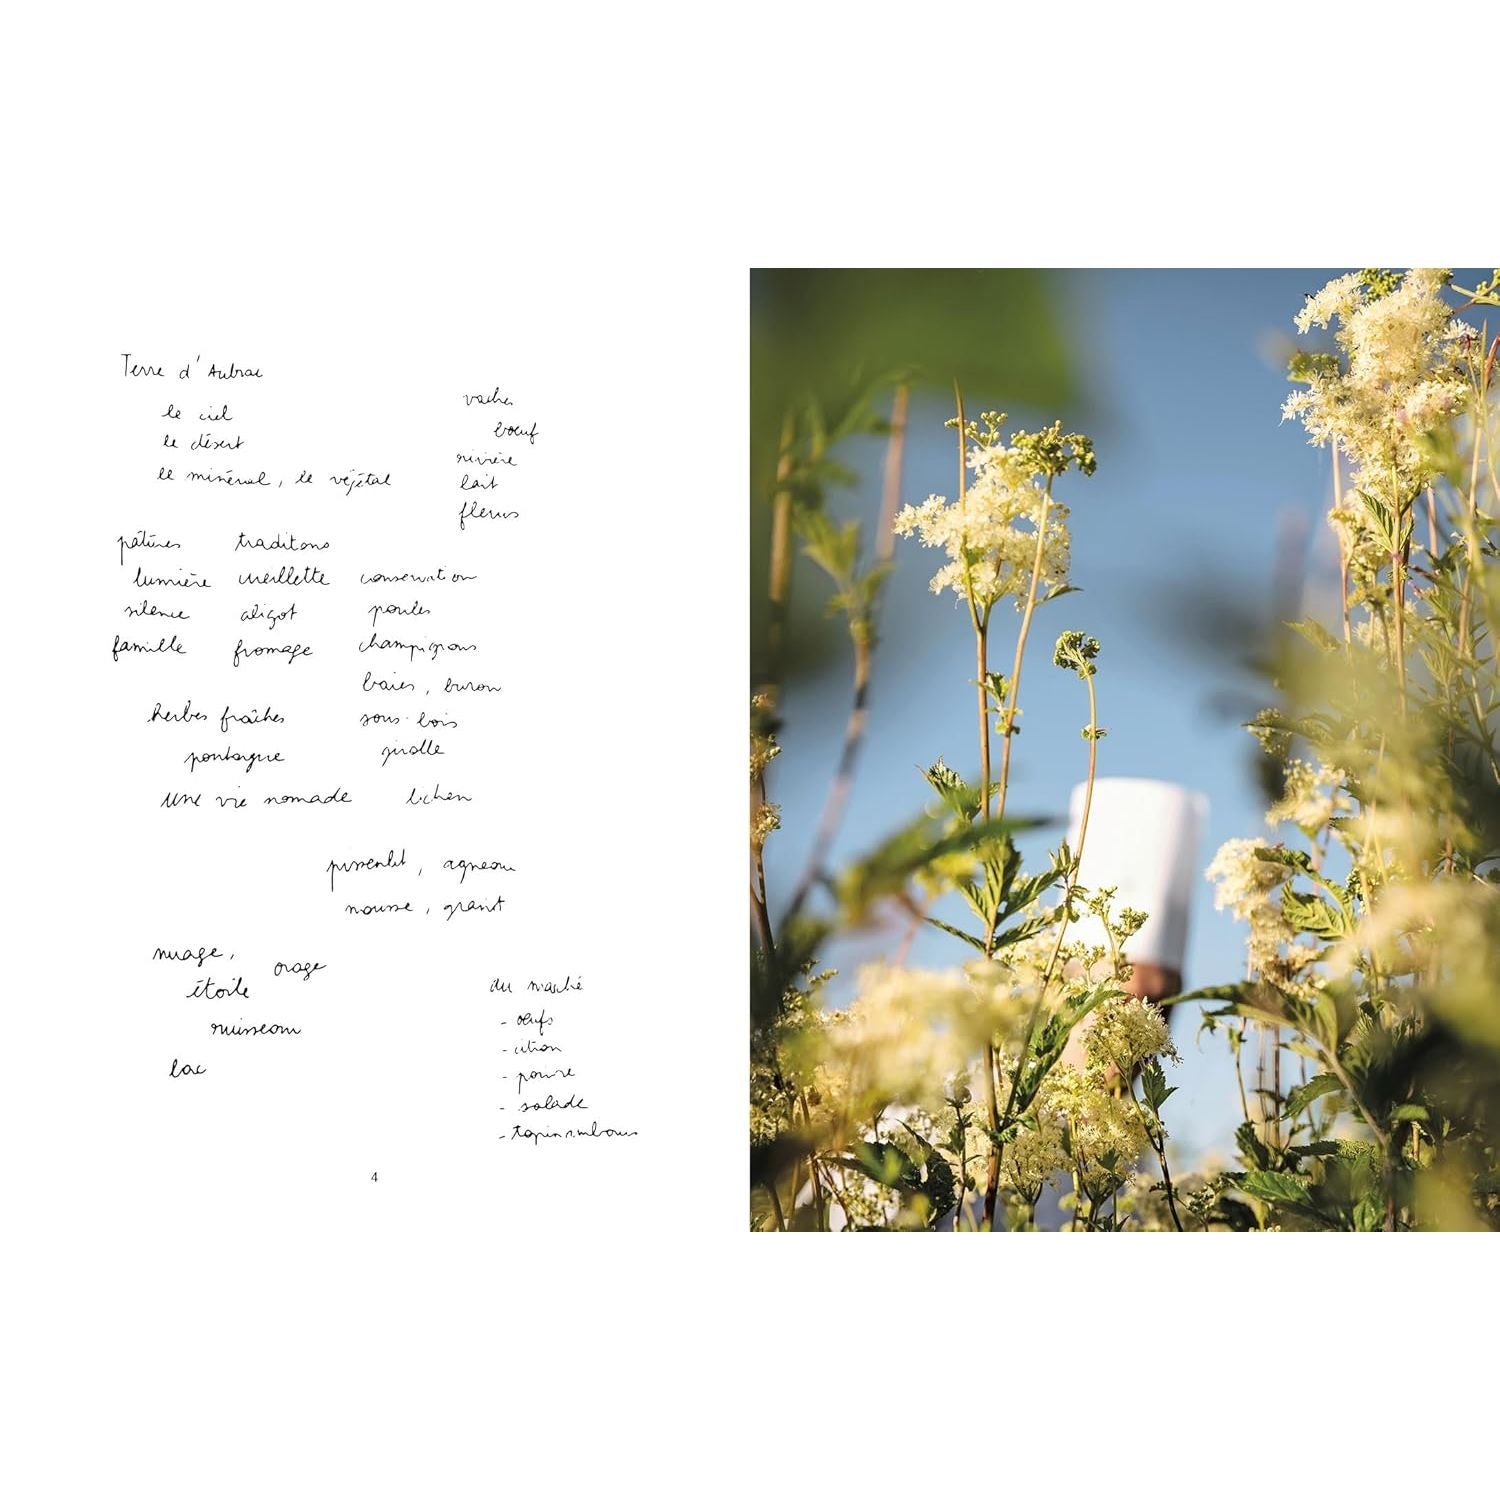 Terre d'Aubrac
le ciel
le désert
le minéral, le végétal
vaches
bœuf
rivière
lait
fleurs
pâtures traditons
lumière cueillette conservation
silence aligot poules
famille fromage champignons
baies, buron
herbes fraîches sous-bois
girolle
une vie nomade lichen
pissenlit, agneau
mousse, granit
nuage,
orage
étoile
ruisseau
lac
du marché
- œufs
- citron
- poivre
- salade
- topinambours
4